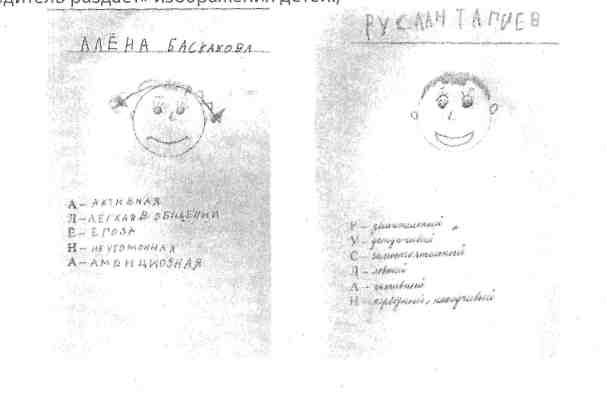 дитель раздает» изображения детей.)
АЛЁНА БАСКАКОВА
А – АКТИВНАЯ
Л – ЛЕГКАЯ В ОБЩЕНИИ
Ё – ЕГОЗА
Н – НЕУГОМОННАЯ
А – АМБИЦИОЗНАЯ
РУСЛАН ТАГИЕВ
Р – решительный
У – усидчивый
С – самостоятельный
Л – ловкий
А – активный
Н – находчивый